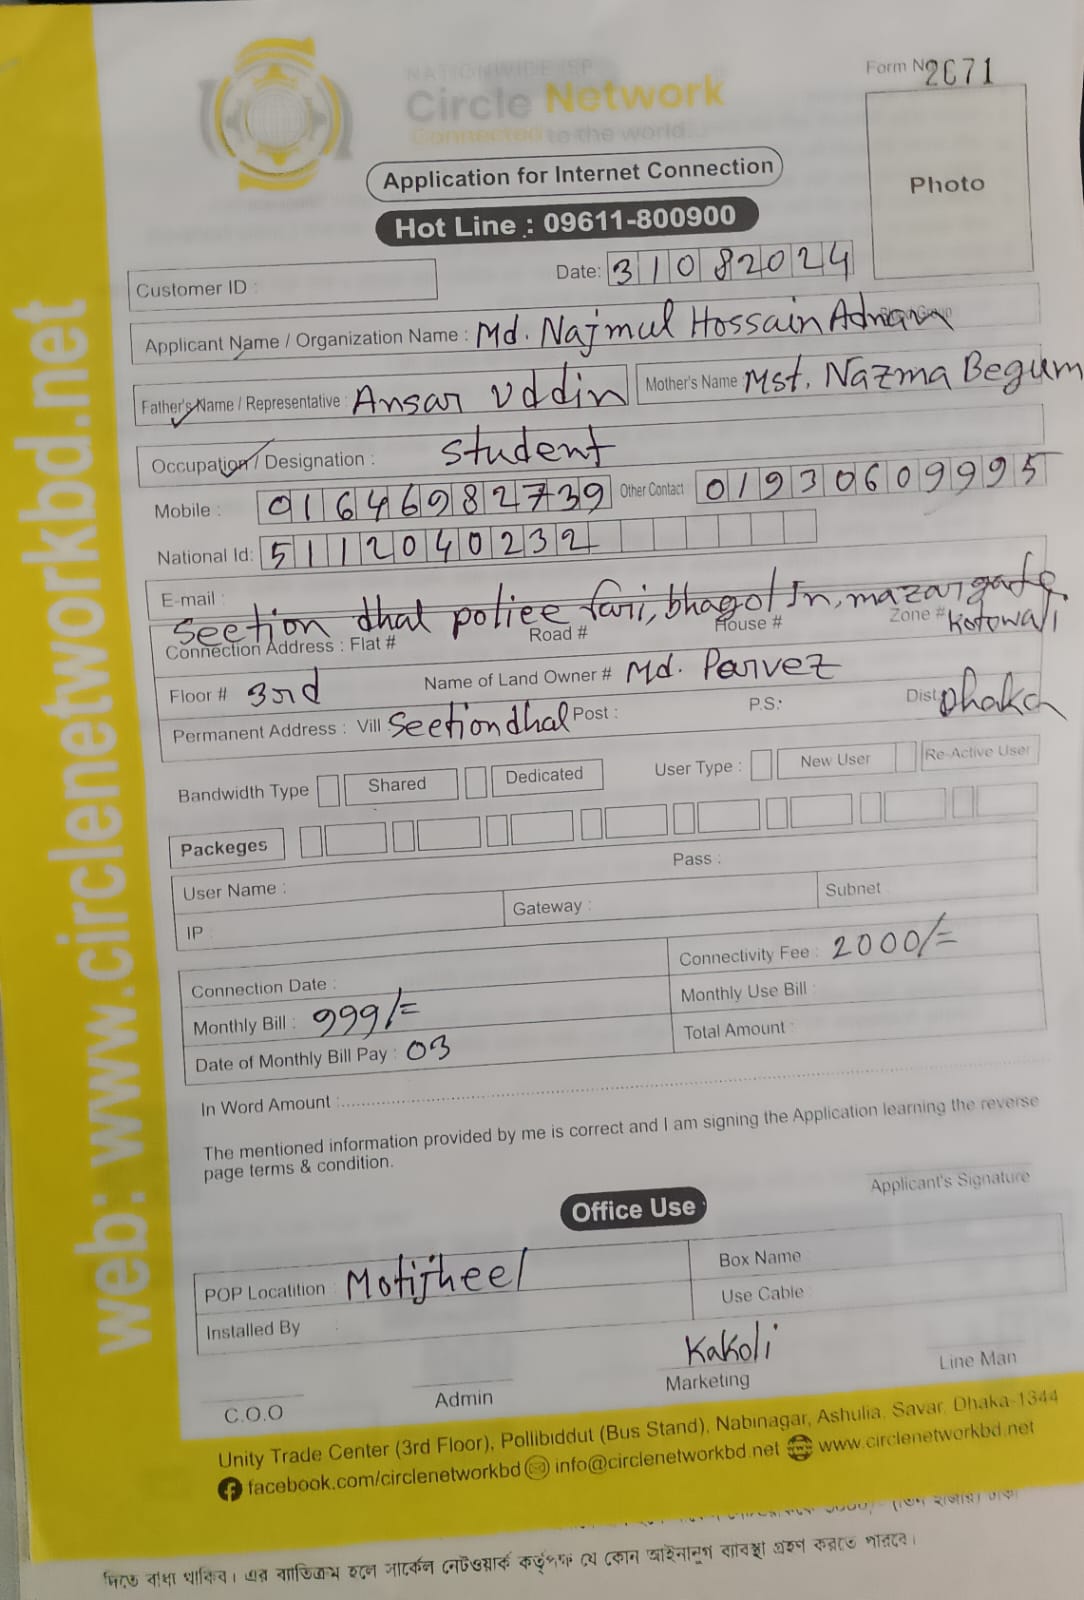 NATIONWIDE ISP
Circle Network
Connected to the world...
Form No 2671
Application for Internet Connection
Photo
Hot Line : 09611-800900
Customer ID :
Date: 31082024
Applicant Name / Organization Name : Md. Najmul Hossain Adnan
Father's Name / Representative : Ansar Uddin Mother's Name : Mst. Nazma Begum
Occupation / Designation : Student
Mobile : 01646982739 Other Contact 01930609995
National Id: 5112040232
E-mail :
Seetion dhal poliee fari, bhagol In, mazar gate,
Connection Address : Flat # Road # House # Zone # Kotowali
Floor # 3rd Name of Land Owner # Md. Parvez
Permanent Address : Vill : Seetiondhal Post : P.S.: Dist. Dhaka
Bandwidth Type Shared Dedicated User Type : New User Re-Active User
Packeges
User Name : Pass :
IP : Gateway : Subnet
Connection Date : Connectivity Fee : 2000/=
Monthly Bill : 999/= Monthly Use Bill :
Date of Monthly Bill Pay : 03 Total Amount :
In Word Amount :
The mentioned information provided by me is correct and I am signing the Application learning the reverse
page terms & condition.
Applicant's Signature
Office Use
POP Locatition : Motijheel Box Name
Installed By : Use Cable
Kakoli
C.O.O Admin Marketing Line Man
Unity Trade Center (3rd Floor), Pollibiddut (Bus Stand), Nabinagar, Ashulia, Savar, Dhaka-1344
facebook.com/circlenetworkbd info@circlenetworkbd.net www.circlenetworkbd.net
web: www.circlenetworkbd.net
দিতে বাধ্য থাকিব। এর ব্যতিক্রম হলে সার্কেল নেটওয়ার্ক কর্তৃপক্ষ যে কোন আইনানুগ ব্যবস্থা গ্রহণ করতে পারবে।